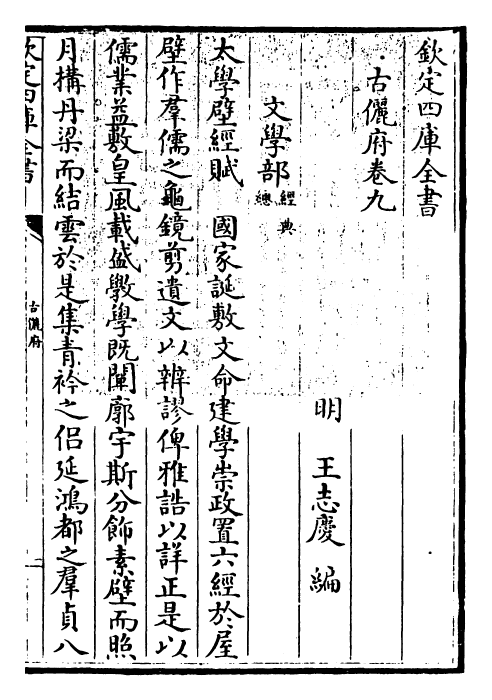 欽定四庫全書
古儷府卷九
明 王志慶 編
文學部 經典總
太學壁經賦 國家誕敷文命建學崇政置六經於屋
壁作羣儒之龜鏡剪遺文以辨謬俾雅誥以詳正是以
儒業益敷皇風載盛斆學既闡廓宇斯分飾素壁而照
月搆丹梁而結雲於是集青衿之侣延鴻都之羣貞八
欽定四庫全書
古儷府